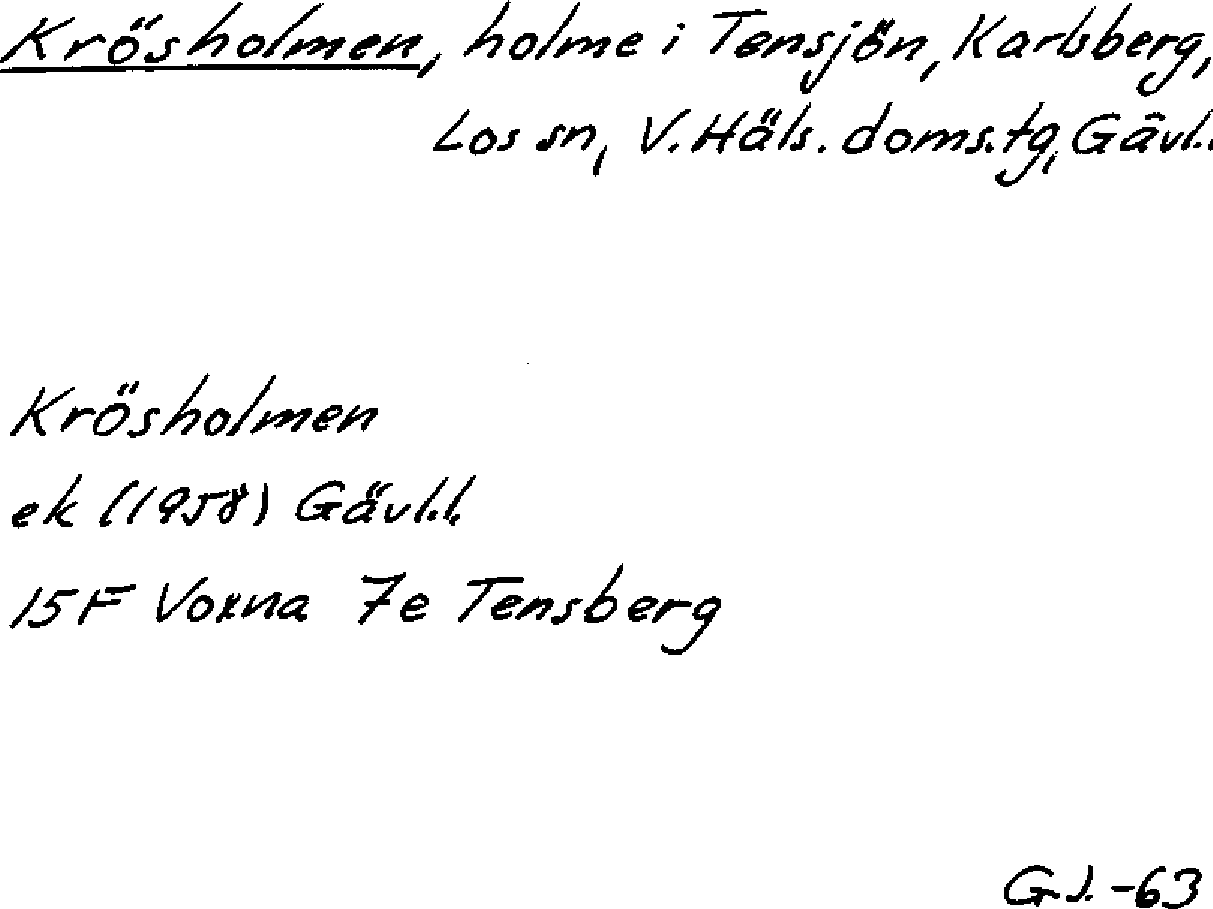 Krösholmen, holme i Tensjön, Karlsberg,
Los sn, V. Häls. doms.tg, Gävl.l.
Krösholmen
ek (1958) Gävl.l.
15F Voxna 7e Tensberg
G.J. -63